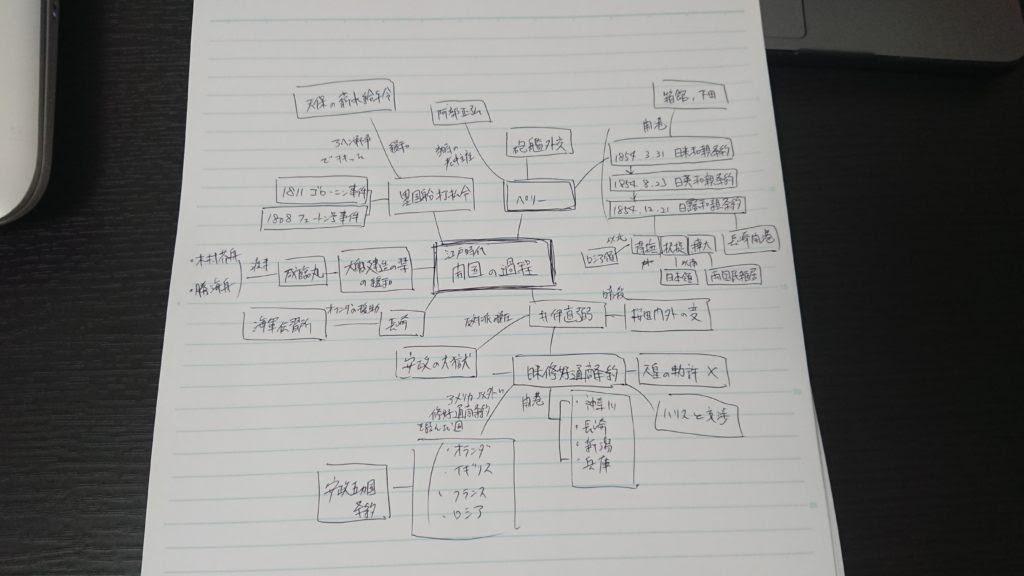 天保の薪水給与令
阿部正弘
箱館、下田
アヘン戦争
で
緩和
老中
砲艦外交
開港
1854.3.31 日米和親条約
1811 ゴローニン事件
異国船打払令
ペリー
1854.8.23 日英和親条約
1808 フェートン号事件
1854.12.21 日露和親条約
江戸時代
開国の過程
以北
ロシア領
択捉
樺太
長崎開港
日本領
両国民雑居
・木村芥舟
・勝海舟
咸臨丸
大船建造の禁
の緩和
海軍伝習所
オランダの援助
長崎
反対派
井伊直弼
暗殺
桜田門外の変
安政の大獄
日米修好通商条約
天皇の勅許 ×
アメリカ以外に
修好通商条約
を結んだ国
開港
・神奈川
・長崎
・新潟
・兵庫
ハリスと交渉
安政五カ国
条約
・オランダ
・イギリス
・フランス
・ロシア